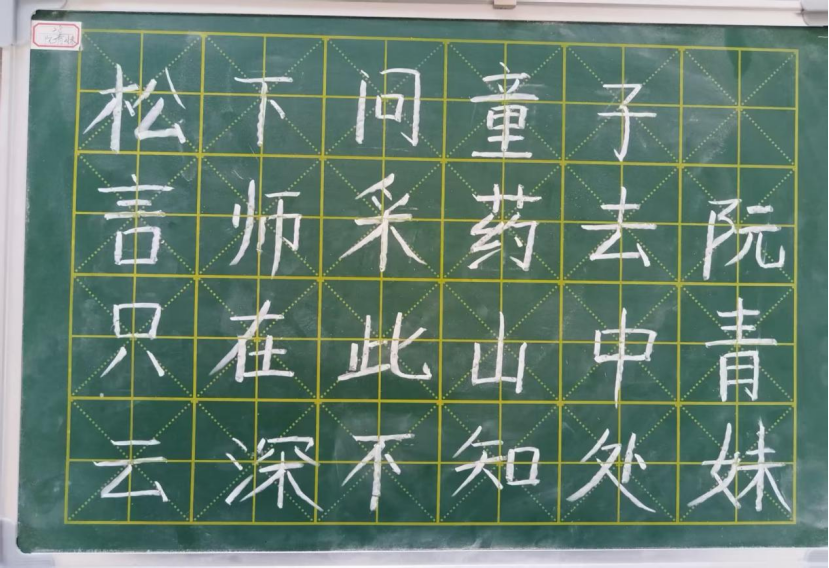 松下问童子
言师采药去阮
只在此山中青
云深不知处妹